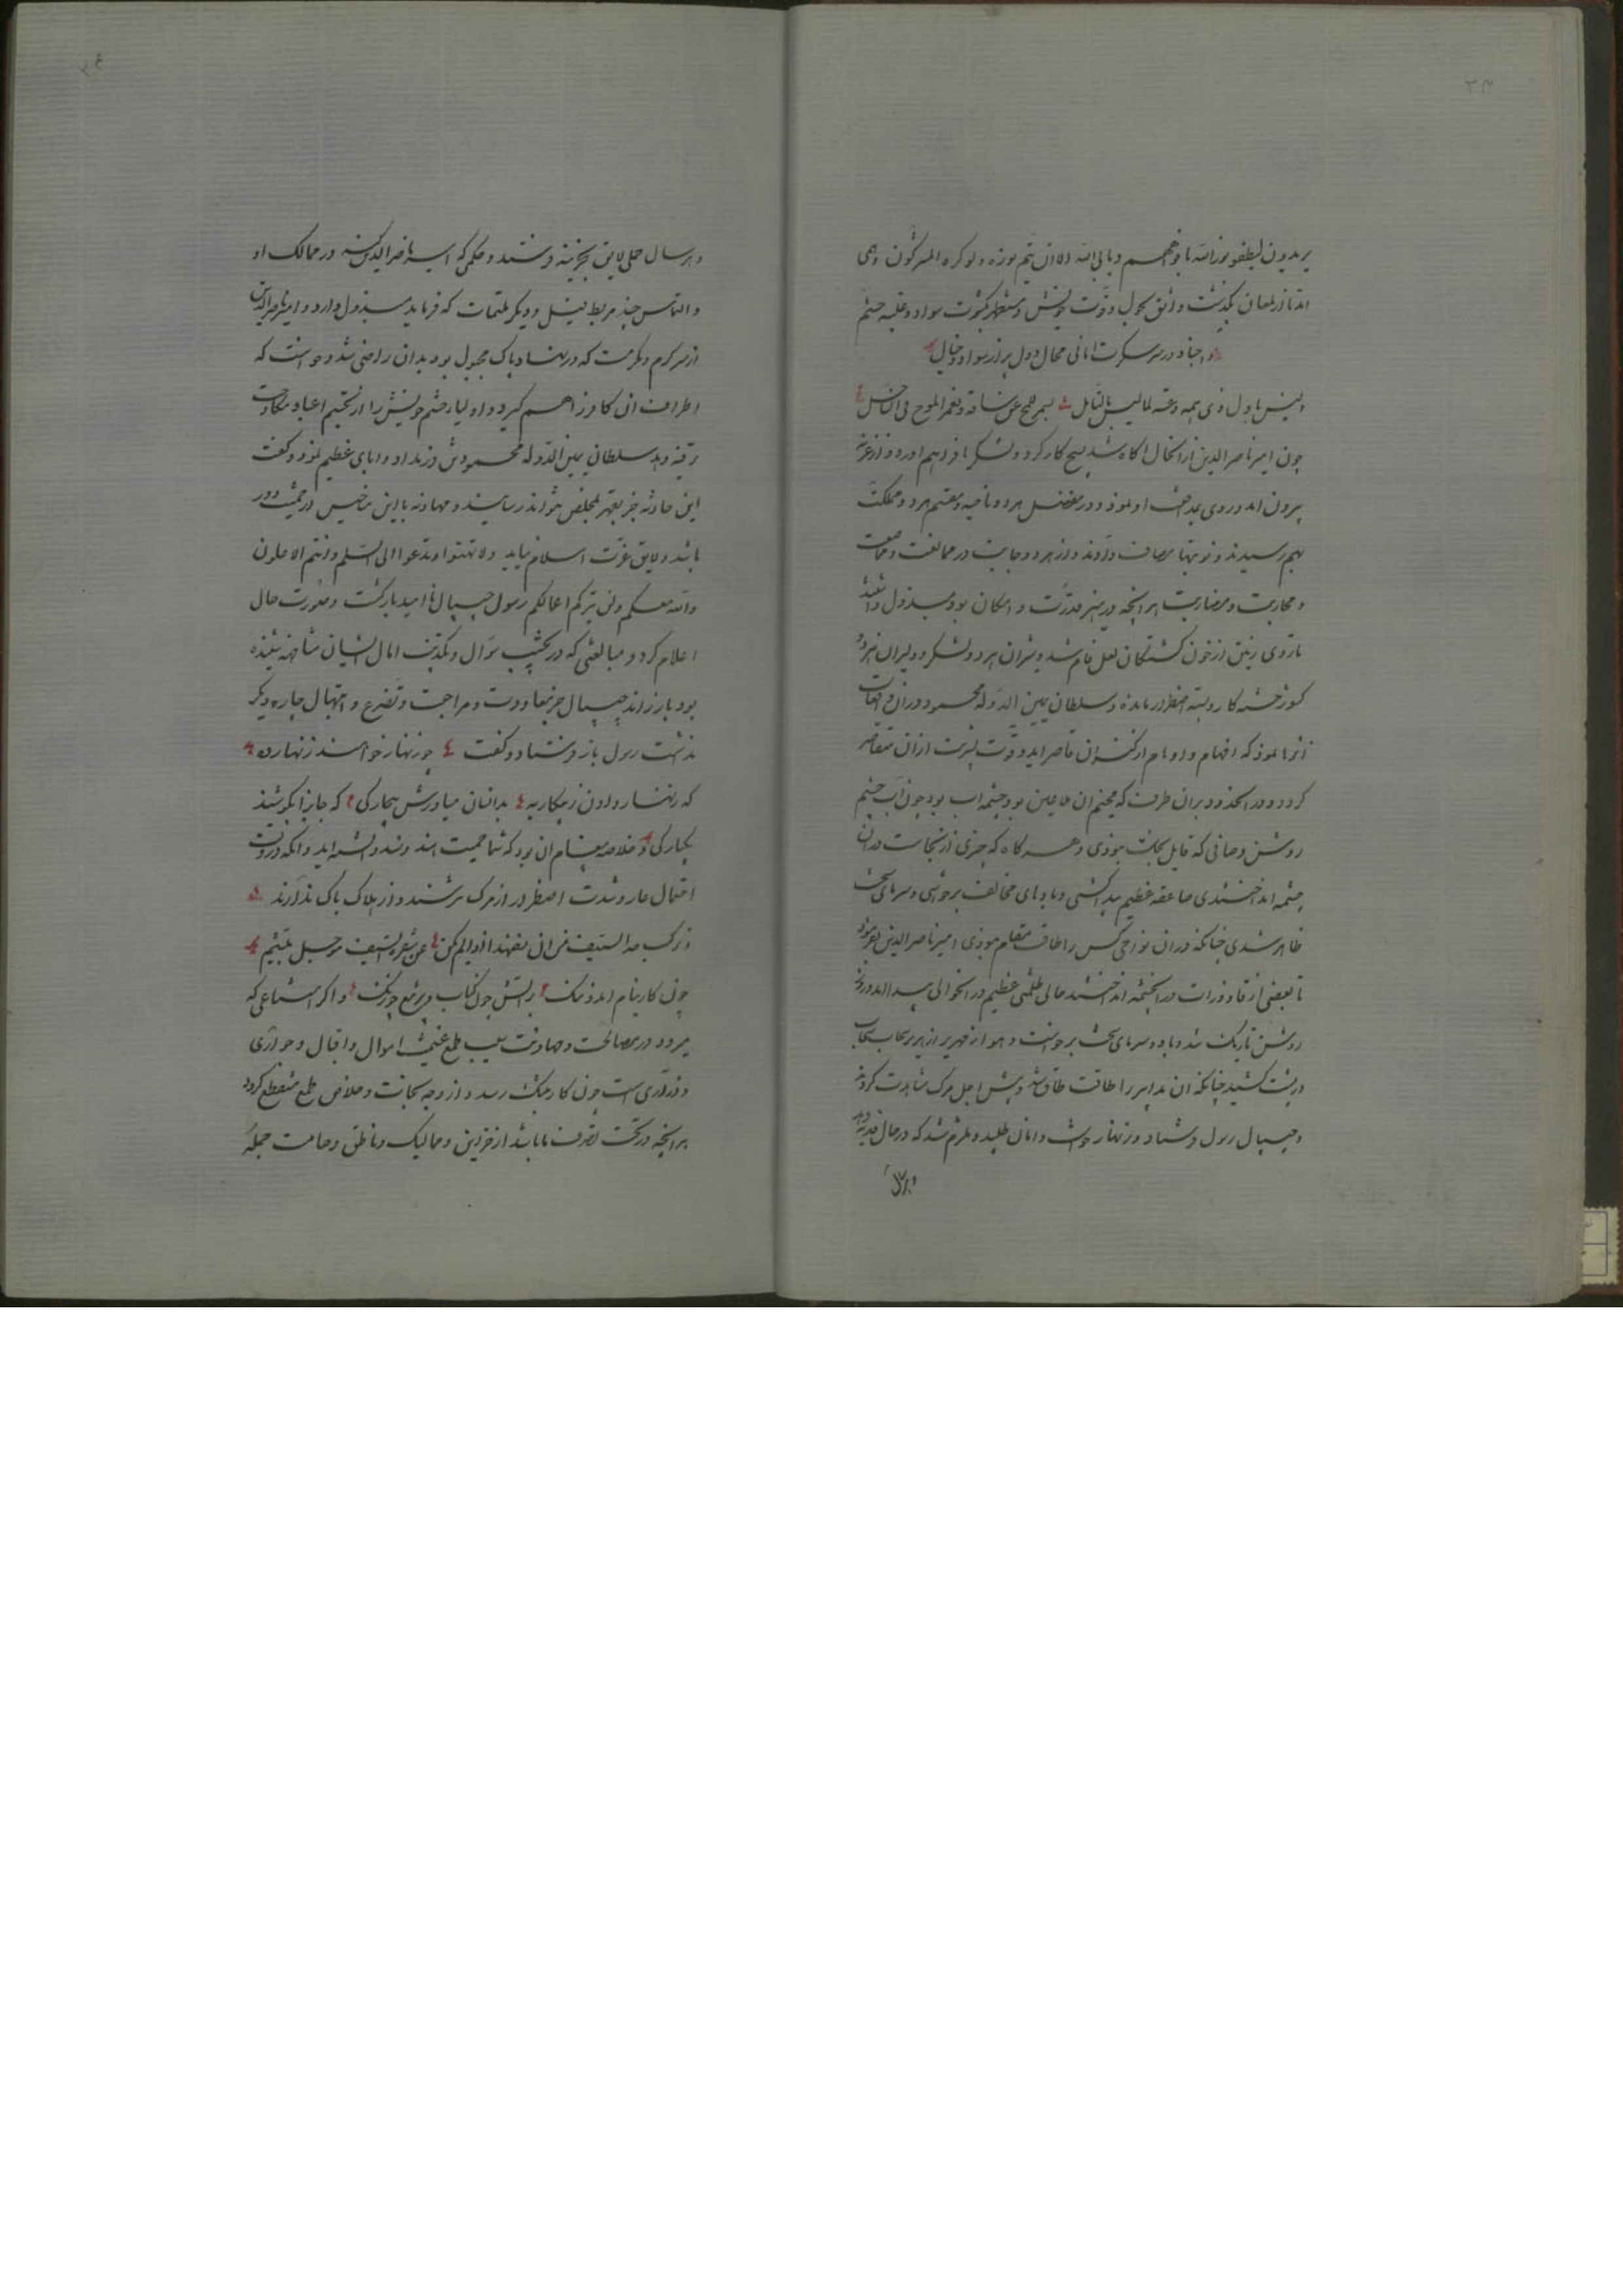 ۲۳
یریدون لیطفوا نورالله بافواههم ویابی الله الا ان یتم نوره ولو کره المشرکون وهمی
از لمغان بگذشت واثق بحول وقوت خویش ومستظهر بکثرت سواد وغلبه حشم
واجناد در سر سکرت امانی محال ودل پر از سودا وخیال
ولیس باول ذی همه دعته لما لیس بالنائل یشمر للج عن ساقه ویغمره الموج فی الساحل
چون امیر ناصرالدین ازانحال اکاه شد بسیج کار کرد ولشکر فراهم اورد واز غزنه
بیرون امد وروی بمدافعت او نمود ودر مفصل هر دو ناحیه ومقسم هر دو مملکت
بهم رسیدند ونوبتها مصاف دادند واز هر دو جانب در ممانعت ومدافعت
ومحاربت ومضاربت هر انچه در حیز قدرت وامکان بود مبذول داشتند
تا روی زمین از خون کشتکان لعل فام شد وشیران هر دو لشکر ودلیران هر دو
کوشه کار وبسته اضطرار ماندند وسلطان یمین الدوله محمود دران مقامات
اثرها نمود که افهام واوهام از کنه ان قاصر اید وقوت بشریت ازان متقاصر
کردد ودر انحدود بران طرف که مخیم ان ملاعین بود چشمه اب بود چون اب چشم
روشن وصافی که قابل نجاست نبودی وهر کاه که چیزی از نجاسات دران
چشمه انداختندی صاعقه عظیم پیدا کشتی وبادهای مخالف برخواستی وسرمای سخت
ظاهر شدی چنانکه دران نواحی کس را طاقت مقام نبودی امیر ناصرالدین بفرمود
تا بعضی از قاذورات درانچشمه انداختند حالی ظلمتی عظیم در انحوالی پیدا امد وروز
روشن تاریک شد وباد وسرمای سخت برخواست وهوا از زمهریر ابر سحاب سنجاب
در پشت کشید چنانکه ان مدابیر را طاقت طاق شد وپیش اجل مرک مشاهدت کردند
وجیپال رسول فرستاد وزنهار خواست وامان طلبید وملتزم شد که در حال فدیه دهد
وارسال
وارسال حمل لایق بخزینه فرستد وحکمی که امیر ناصرالدین کند در ممالک او
والتماس چند مربط فیل ودیکر ملتمسات که فرماید مبذول دارد وامیر ناصرالدین
از سر کرم ومکرمت که در نهاد پاک مجبول بود بدان راضی شد وخواست که
اطراف ان کار فراهم کیرد واولیا وحشم خویش را از تجشم اعباء مکاوحت
ترفیه دهد سلطان یمین الدوله محمود تن در نداد وابای عظیم نمود وکفت
این حادثه جز بقهر بمخلص نتواند رسانید ومهادنه با این مناحیس از حمیت دور
باشد ولایق عزت اسلام نیاید ولا تهنوا وتدعوا الی السلم وانتم الاعلون
والله معکم ولن یترکم اعمالکم رسول جیپال ناامید بازکشت وصورت حال
اعلام کرد ومبالغتی که در تخییب سوال وتکذیب امال ایشان مشافهه شنیده
بود باز راند جیپال جز معاودت ومراجعت وتضرع وابتهال چاره دیکر
نداشت رسول باز فرستاد وکفت چو زنهار خواهند زنهار ده
که زنهار دادن ز پیکار به بدانسان میاورش بیچارکی که جانرا بکوشند
یکبارکی وخلاصه پیغام ان بود که شما حمیت هند دانسته اید وانکه در وقت
احتمال عار وشدت اضطرار از مرک نترسند واز هلاک باک ندارند
ونرکب حد السیف من ان تضیمنا اذا لم یکن عن شفرة السیف مزحل
چون کار بنام امد وننک بر اتش چون کباب وبر تیغ چو رنک واکر امتناعی که
میرود در مصالحت ومهادنت بسبب طمع غنیمت اموال وافیال وجواری
وذراری است چون کار بتنک رسد واز وجه نجات وخلاص طمع منقطع کردد
هر انچه در تحت تصرف ما باشد از خزاین وممالیک وناطق وصامت جمله